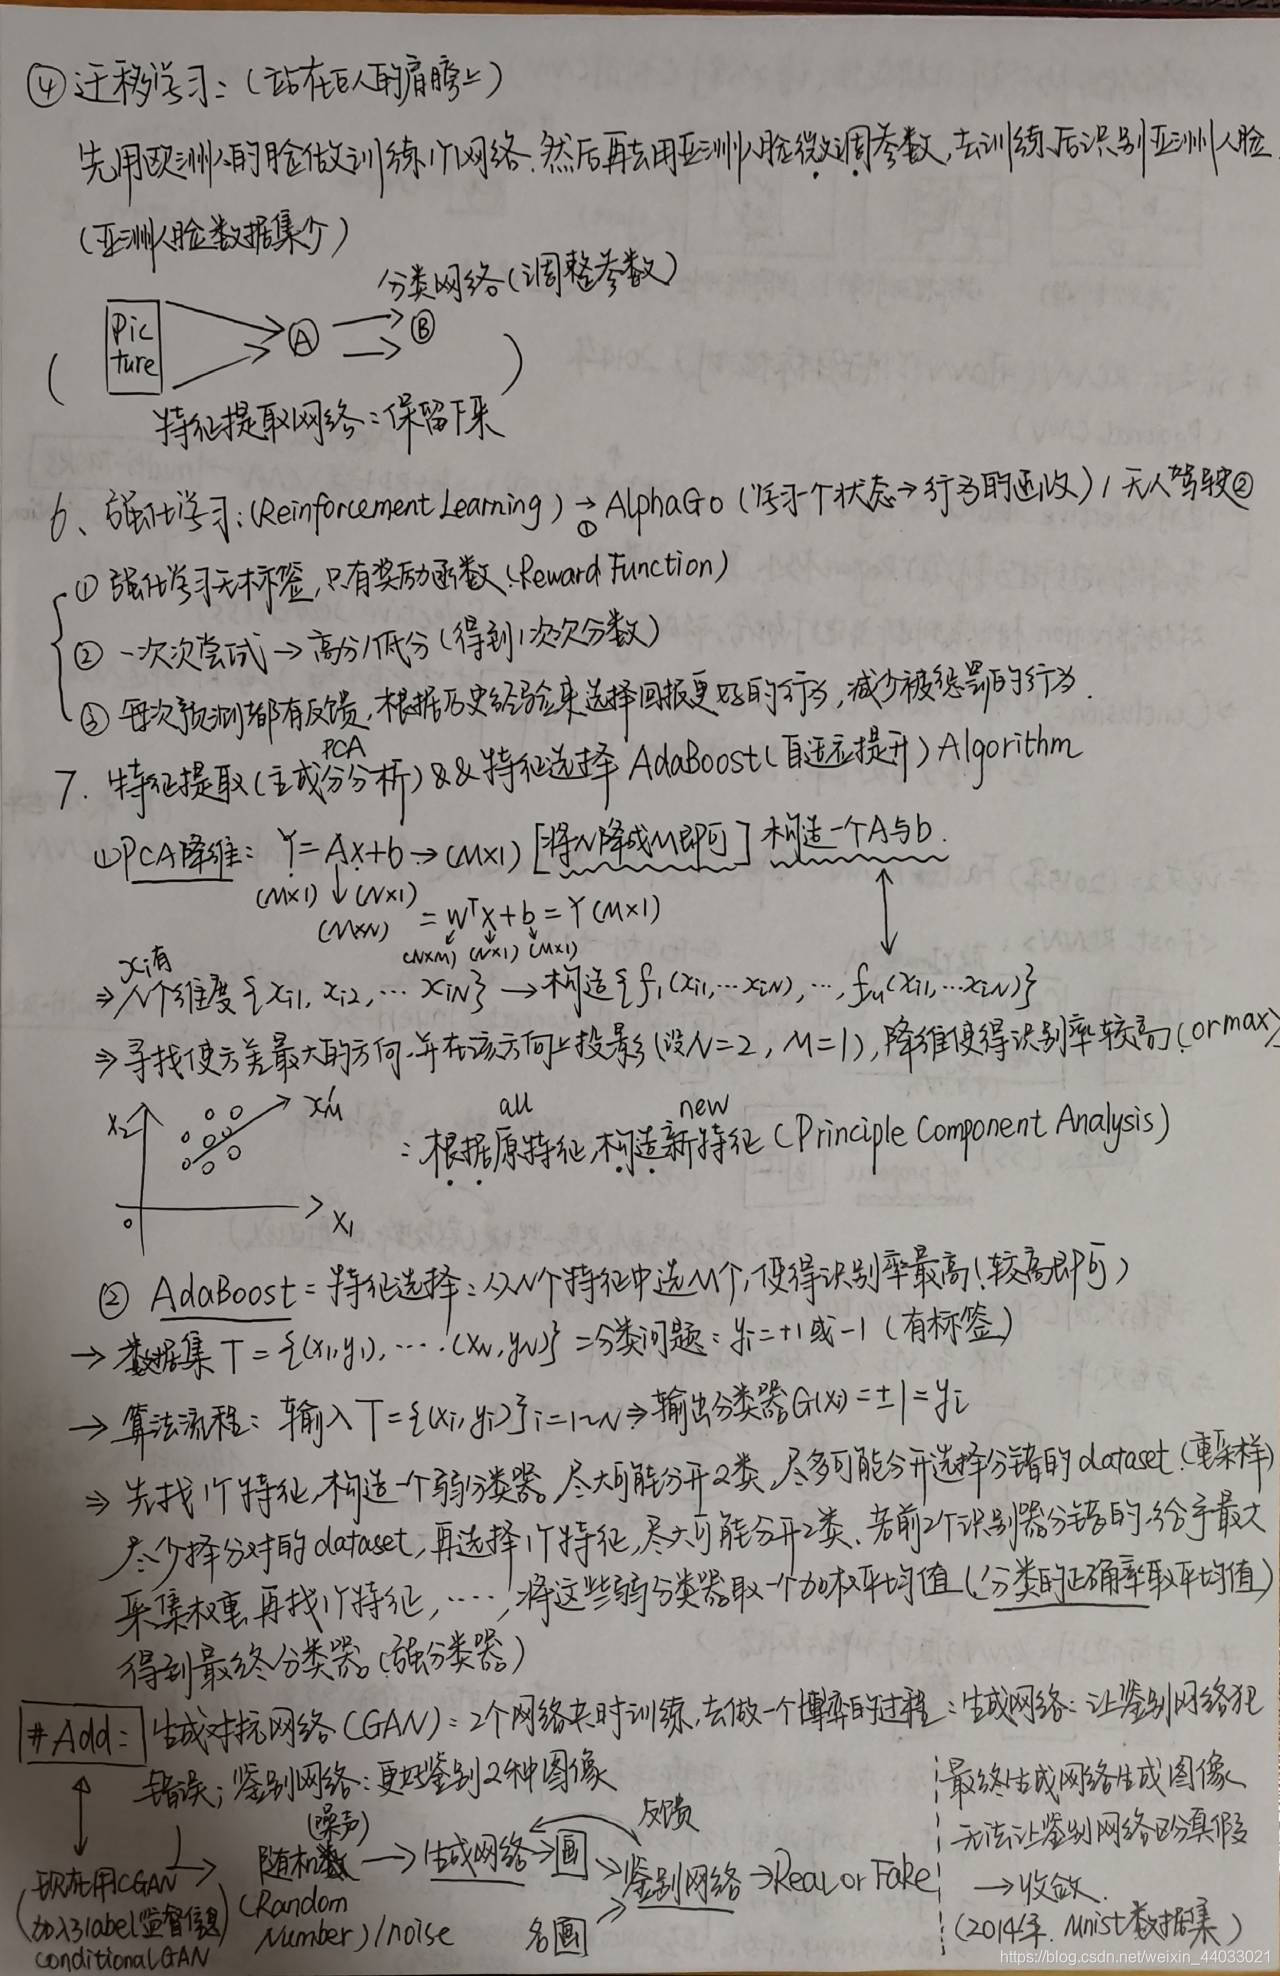 ④ 迁移学习：(站在巨人的肩膀上)
先用欧洲人的脸做训练1个网络，然后再去用亚洲人脸微调参数，去训练后识别亚洲人脸
(亚洲人脸数据集少)
分类网络(调整参数)
Pic
ture
Ⓐ Ⓑ
特征提取网络：保留下来
6、强化学习：(Reinforcement Learning) → ① AlphaGo (学习一个状态→行为的 ) / 无人驾驶②
① 强化学习无标签，只有奖励函数(Reward Function)
② 一次次尝试 → 高分/低分 (得到1次次分数)
③ 每次预测都有反馈，根据历史经验来选择回报更好的行为，减少被惩罚的行为.
PCA
7. 特征提取(主成分分析) && 特征选择 AdaBoost(自适应提升) Algorithm
①PCA降维： Y = Ax+b → (M×1) [将N降成M即可] 构造一个A与b.
(M×1) ↓ (N×1)
(M×N) = WᵀX+b = Y (M×1)
(N×M) (N×1) (M×1)
xi有
⇒ N个维度{xi1, xi2, … xiN} → 构造{f1(xi1,…xiN), …, fM(xi1,…xiN)}
⇒ 寻找使方差最大的方向，并在该方向上投影(设N=2, M=1)，降维使得识别率较高(or max)
X2 x'M
all new
：根据原特征，构造新特征 (Principle Component Analysis)
0 X1
② AdaBoost = 特征选择：从N个特征中选M个，使得识别率最高(较高即可)
→ 数据集 T = {(x1,y1), … (xN,yN)} = 分类问题：yi=+1或-1 (有标签)
→ 算法流程：输入 T={(xi,yi)}i=1~N ⇒ 输出分类器G(x)=±1=yi
⇒ 先找1个特征，构造一个弱分类器，尽大可能分开2类，尽多可能分开选择分错的dataset，(重采样)
尽少择分对的dataset，再选择1个特征，尽大可能分开2类，若前2个识别器分错的，给予最大
采集权重，再找1个特征，……，将这些弱分类器取一个加权平均值(分类的正确率取平均值)
得到最终分类器。(强分类器)
#Add： 生成对抗网络(GAN)：2个网络来时训练，去做一个博弈的过程：生成网络：让鉴别网络犯
错误；鉴别网络：更好鉴别2种图像
最终生成网络生成图像
无法让鉴别网络区分真假
→ 收敛.
(2014年. Mnist数据集)
(噪声) 反馈
随机数 → 生成网络 → 画 鉴别网络 → Real or Fake
(Random
Number)/noise 名画
现在用CGAN
加入label监督信息
conditional GAN
https://blog.csdn.net/weixin_44033021